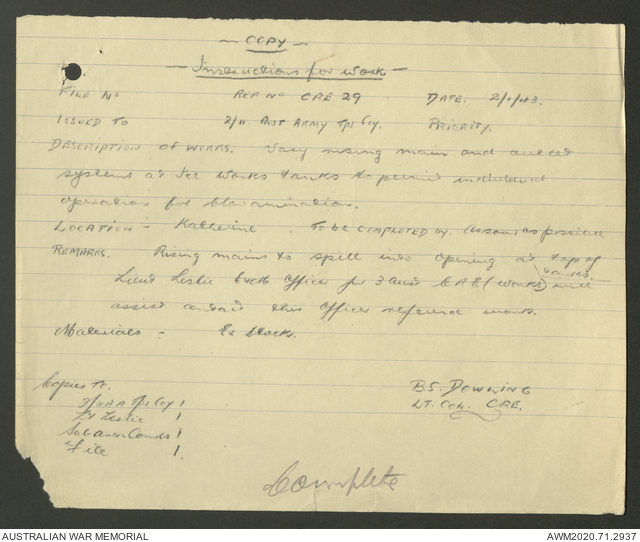 - COPY -
- Instructions for Work -
FILE No REF No CRE 29 DATE. 2/1/43.
ISSUED TO 2/11 AUST ARMY Tps Coy. PRIORITY.
DESCRIPTION OF WORKS. Vary rising main and outlet
systems at Ice Works tanks to permit individual
operation for chlorination.
LOCATION - Katherine. TO BE COMPLETED BY. as soon as possible
REMARKS. Rising mains to spill into opening at top of
tanks.
Lieut Leslie Officer for 3 Aust C.R.E (Works) will
assist contact this Officer work.
Materials - Ex Stocks.
Copies to.
Tps Coy 1
Lt Leslie 1
1
File 1.
B.S. DOWLING
LT. COL. CRE.
Complete
AUSTRALIAN WAR MEMORIAL
AWM2020.71.2937